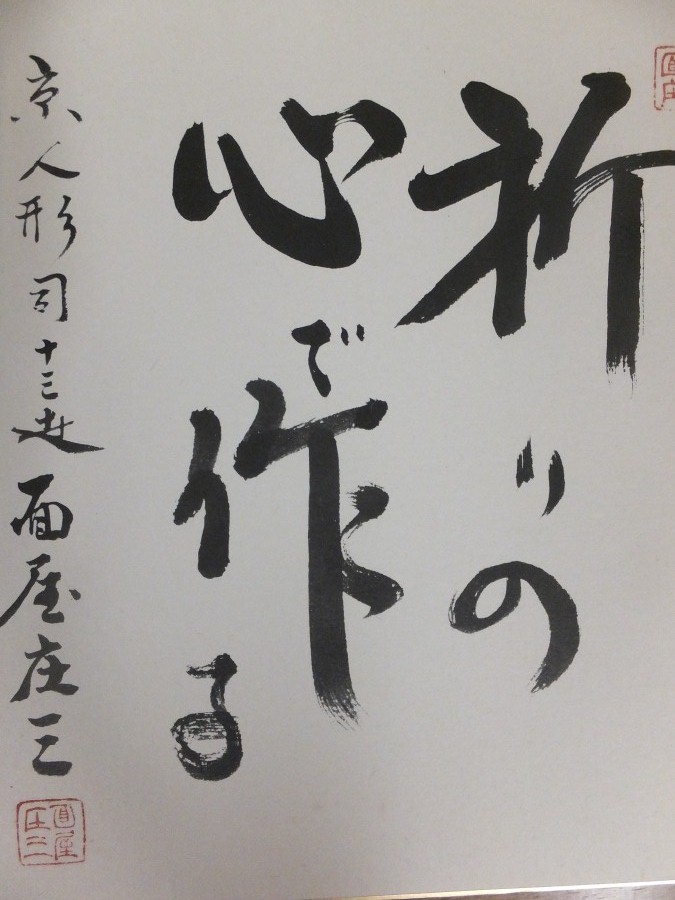 祈りの
心で作る
京人形司十三世面屋庄三
面庄
面屋庄三